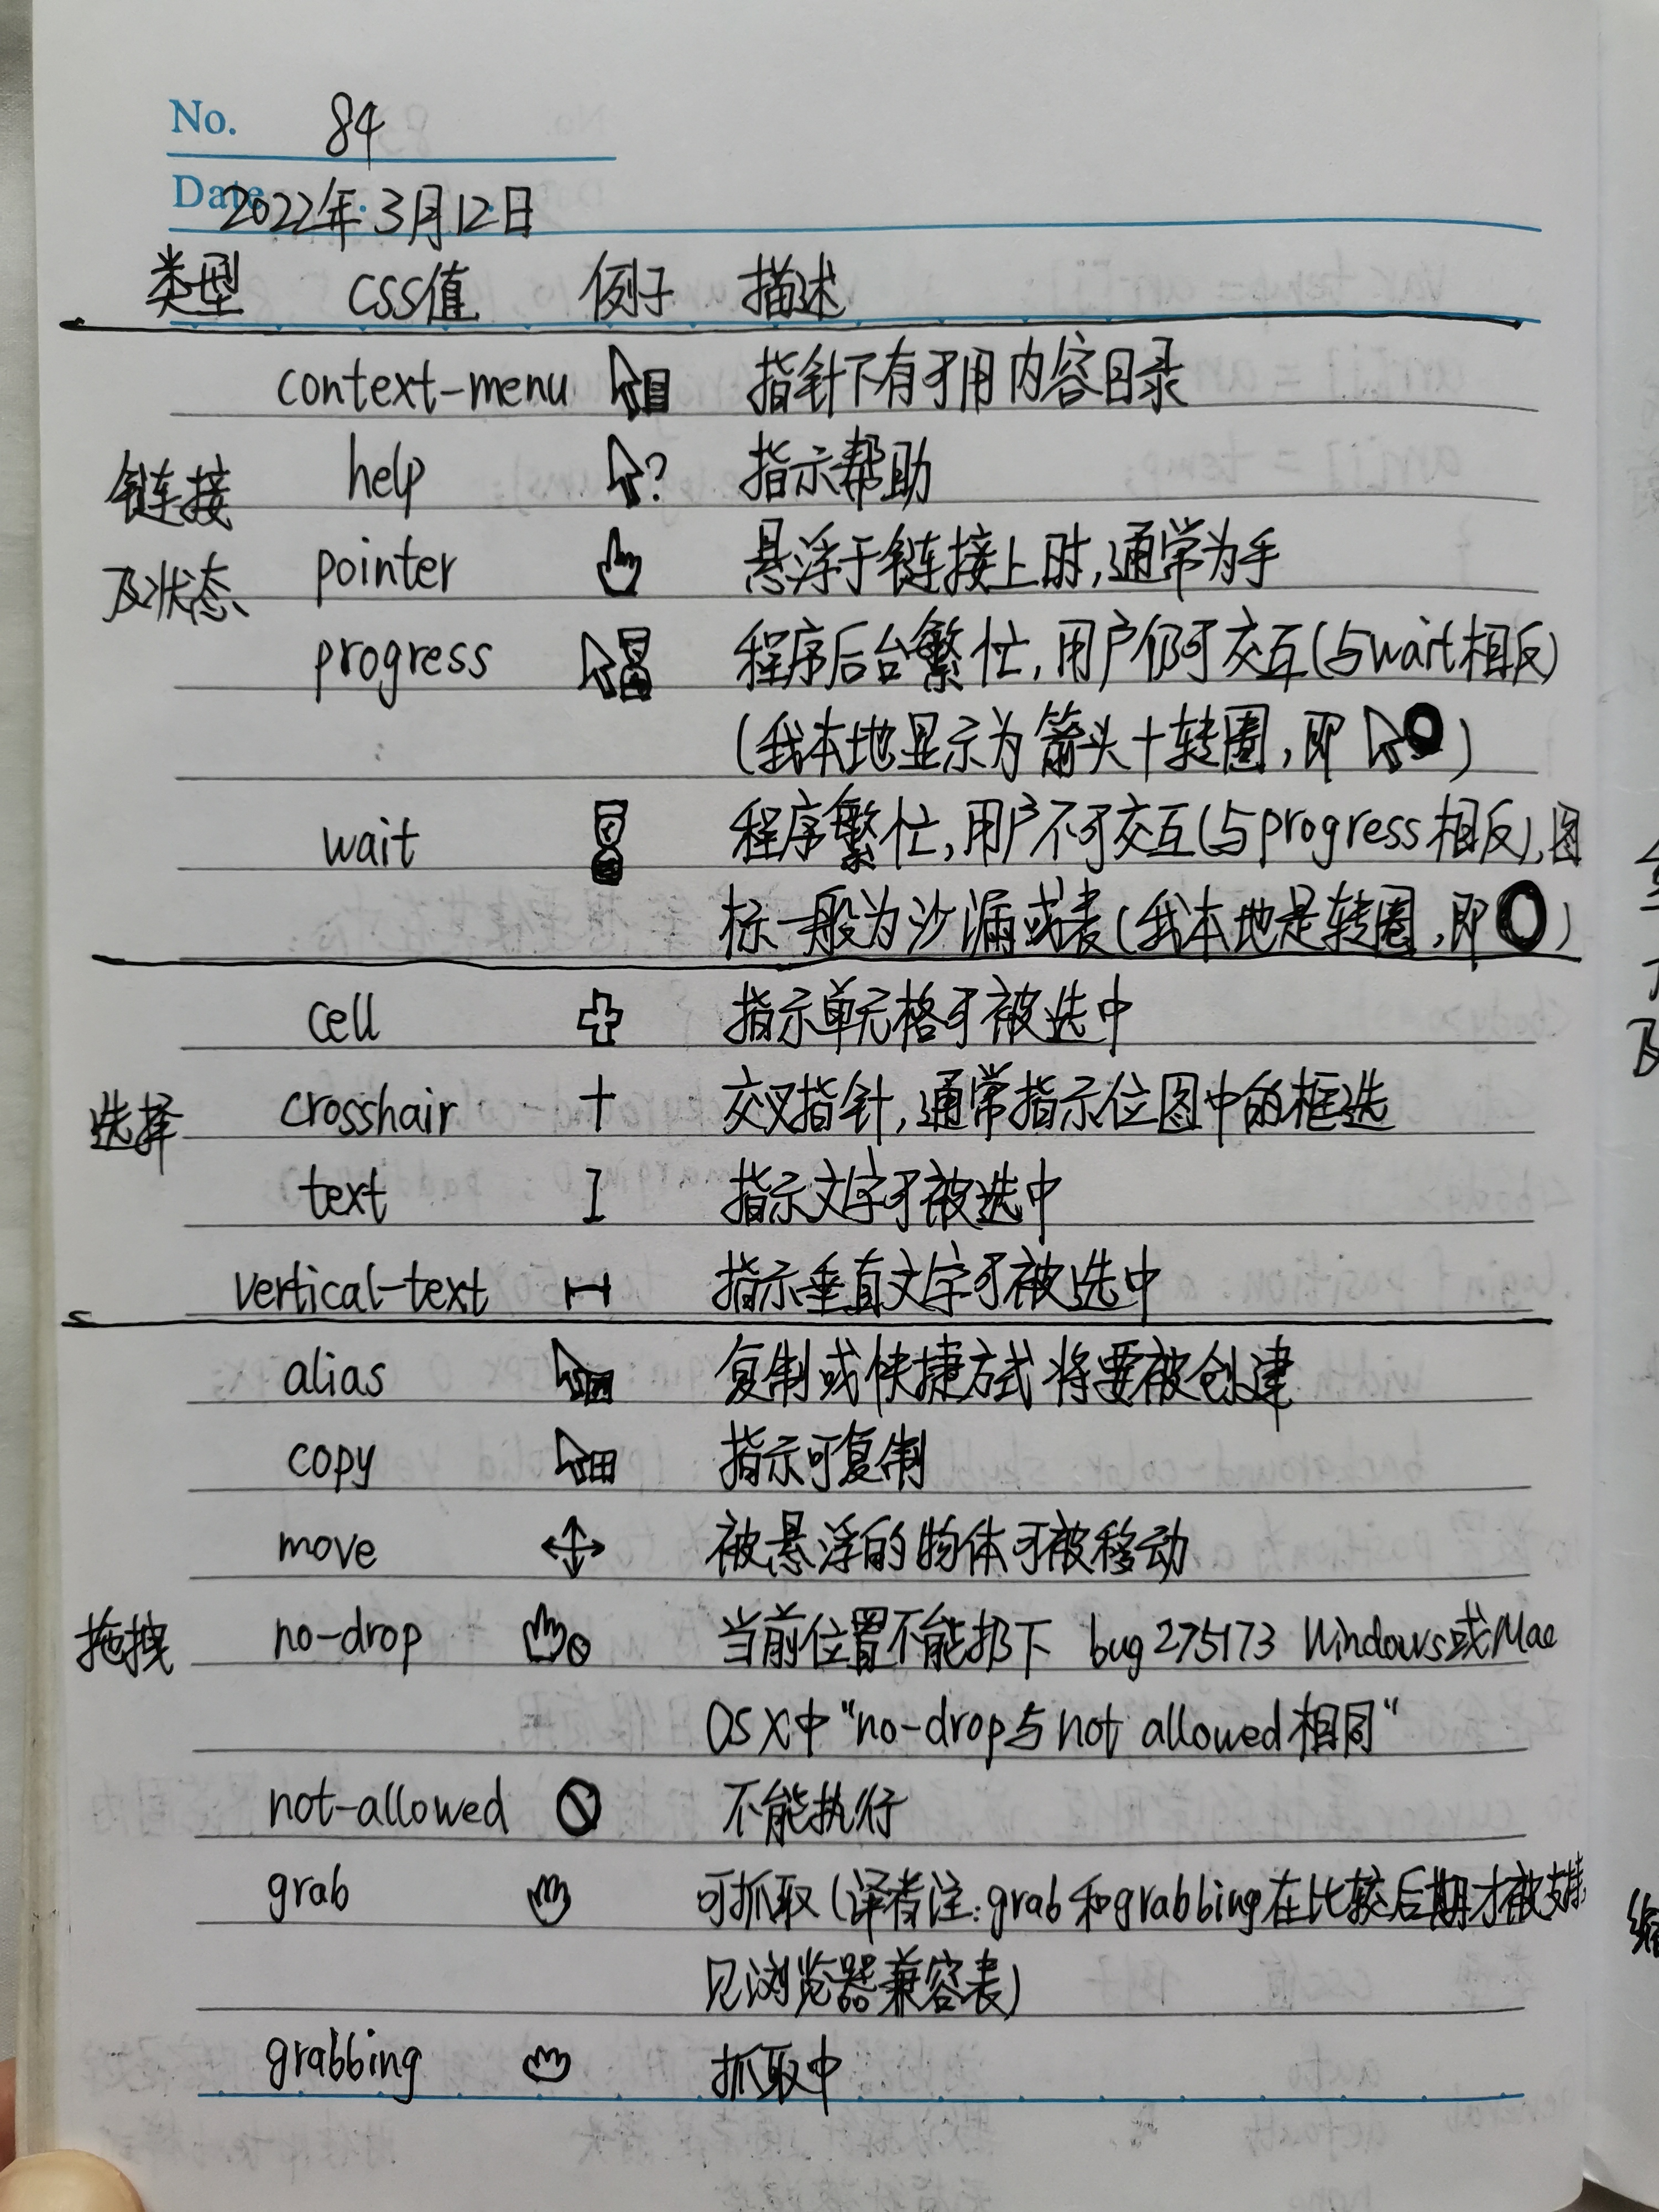 No. 84
Date 2022年3月12日
类型 CSS值 例子 描述
context-menu 指针下有可用内容目录
链接 help ? 指示帮助
及状态 pointer 悬浮于链接上时,通常为手
progress 程序后台繁忙,用户仍可交互(与wait相反)
(我本地显示为箭头+转圈,即 )
wait 程序繁忙,用户不可交互(与progress相反),图
标一般为沙漏或表(我本地是转圈,即 )
cell 指示单元格可被选中
选择 crosshair 交叉指针,通常指示位图中的框选
text 指示文字可被选中
vertical-text 指示垂直文字可被选中
alias 复制或快捷方式将要被创建
copy 指示可复制
move 被悬浮的物体可被移动
拖拽 no-drop 当前位置不能扔下 bug275173 Windows或Mac
OS X中"no-drop与not allowed相同"
not-allowed 不能执行
grab 可抓取(译者注:grab和grabbing在比较后期才被支持,
见浏览器兼容表)
grabbing 抓取中